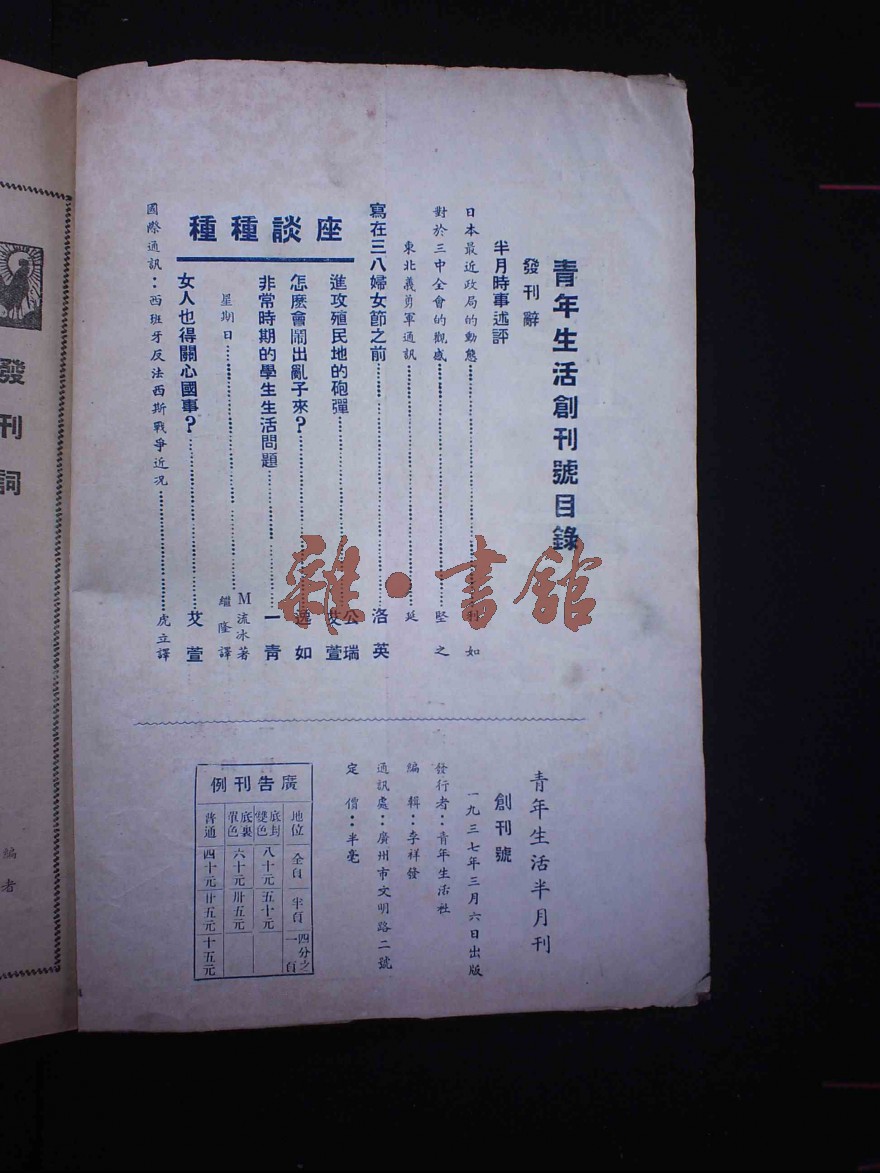 青年生活創刊號目錄
發刊辭
半月時事述評
日本最近政局的動態……如
對於三中全會的觀感……堅之
東北義勇軍通訊……延
寫在三八婦女節之前……洛英
座談種種
進攻殖民地的砲彈……公瑞 艾萱
怎麼會鬧出亂子來？……逸如
非常時期的學生生活問題……一青
星期日……M流冰著 繼隆譯
女人也得關心國事？……艾萱
國際通訊：西班牙反法西斯戰爭近况……虎立譯
青年生活半月刊
創刊號
一九三七年三月六日出版
發行者：青年生活社
編輯：李祥發
通訊處：廣州市文明路二號
定價：半毫
廣告刊例
地位 全頁 半頁 四分之一頁
底封雙色 八十元 五十元
底裏單色 六十元 卅五元
普通 四十元 廿五元 十五元
發刊詞
編者
雜·書館